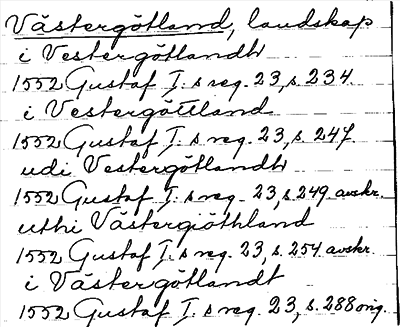 Västergötland, landskap
i Vestergötlandh
1552 Gustaf I. s reg. 23, s. 234.
i Vestergöttland
1552 Gustaf I. s reg. 23, s. 247.
udi Vestergötlandh
1552 Gustaf I. s reg. 23, s. 249 avskr.
uthi Västergiöthland
1552 Gustaf I. s reg. 23, s. 254 avskr.
i Västergötlandt
1552 Gustaf I. s reg. 23, s. 288 orig.